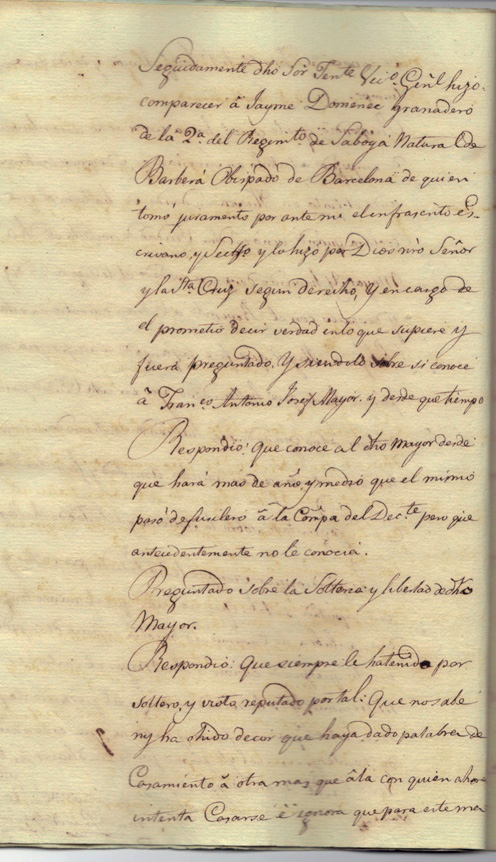 Seguidamente dho Sor Tente Vico Genl hizo
comparecer â Jayme Domenec granadero
de la 2a. del Regimto. de Saboya Natural de
Barberá Obispado de Barcelona de quien
tomó juramento por ante mi el infrascrito Es-
crivano, y Secrio y lo hizo por Dios nro Señor
y la Sta Cruz segun derecho, y en cargo de
el prometio decir verdad en lo que supiere y
fuera preguntado. Y siendolo sobre si conoce
â Franco. Antonio Josef Mayor. y desde que tiempo
Respondió: Que conoce al dho Mayor desde
que hará mas de año, y medio que el mismo
pasó de fusilero â la Compa del Decte pero que
antecedentemente no le conocia.
Preguntado sobre la Solteria y libertad de dho
Mayor.
Respondio: Que siempre le ha tenido por
soltero, y visto, reputado por tal: Que no sabe
ny ha ohido decir que haya dado palabra de
Casamiento â otra mas que âla con quien ahora
intenta Casarse ê ignora que para este ma